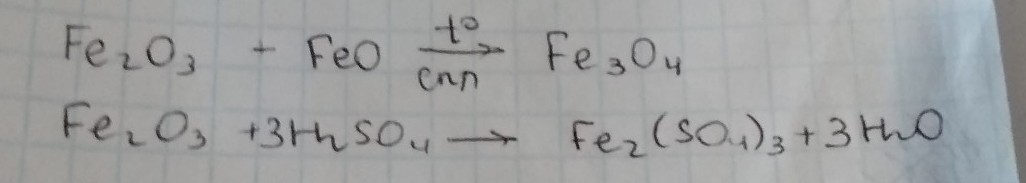 Fe₂O₃ + FeO \xrightarrow[спл]{t°} Fe₃O₄
Fe₂O₃ + 3H₂SO₄ → Fe₂(SO₄)₃ + 3H₂O